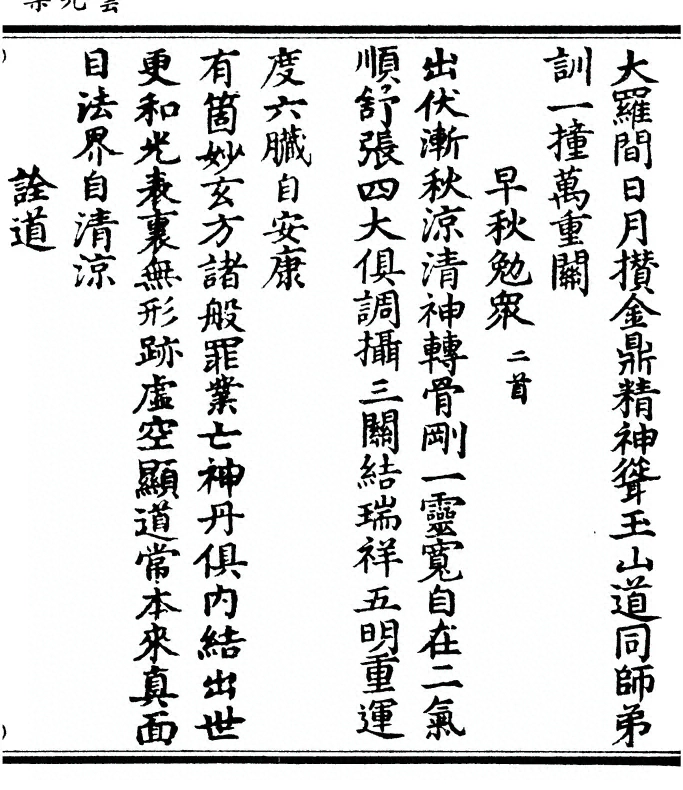 大羅間日月攅金鼎精神聳玉山道同師弟
訓一撞萬重關
早秋勉眾 二首
出伏漸秋涼清神轉骨剛一靈寬自在二氣
順舒張四大俱調攝三關結瑞祥五明重運
度六臟自安康
有箇妙玄方諸般罪業亡神丹俱内結出世
更和光表裏無形跡虛空顯道常本來真面
目法界自清涼
詮道